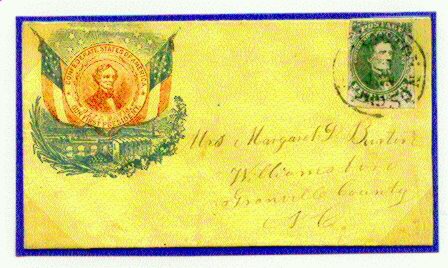 CONFEDERATE STATES OF AMERICA
OUR FIRST PRESIDENT
Mrs Margaret D. Burton
Williamsboro
Granville County
N.C.